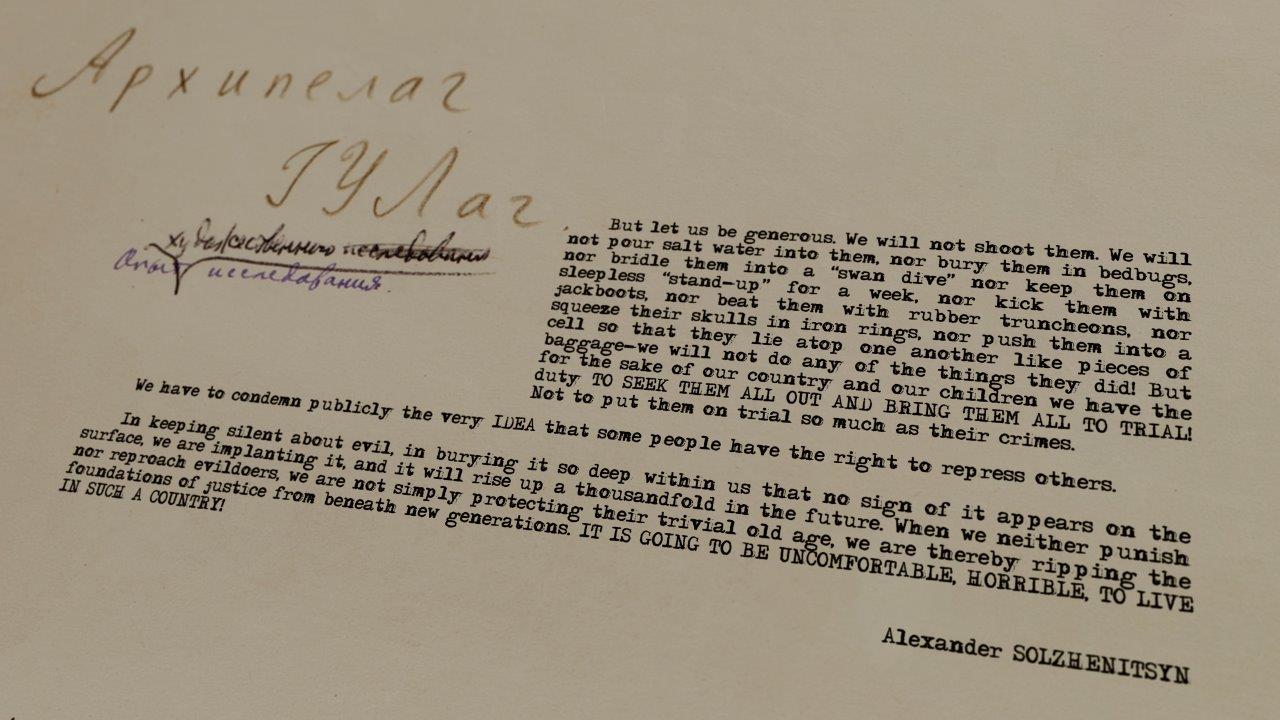 Архипелаг
ГУЛаг
художественного исследования
Опыт исследования.
But let us be generous. We will not shoot them. We will
not pour salt water into them, nor bury them in bedbugs,
nor bridle them into a “swan dive” nor keep them on
sleepless “stand-up” for a week, nor kick them with
jackboots, nor beat them with rubber truncheons, nor
squeeze their skulls in iron rings, nor push them into a
cell so that they lie atop one another like pieces of
baggage—we will not do any of the things they did! But
for the sake of our country and our children we have the
duty TO SEEK THEM ALL OUT AND BRING THEM ALL TO TRIAL!
Not to put them on trial so much as their crimes.
We have to condemn publicly the very IDEA that some people have the right to repress others.
In keeping silent about evil, in burying it so deep within us that no sign of it appears on the
surface, we are implanting it, and it will rise up a thousandfold in the future. When we neither punish
nor reproach evildoers, we are not simply protecting their trivial old age, we are thereby ripping the
foundations of justice from beneath new generations. IT IS GOING TO BE UNCOMFORTABLE, HORRIBLE, TO LIVE
IN SUCH A COUNTRY!
Alexander SOLZHENITSYN